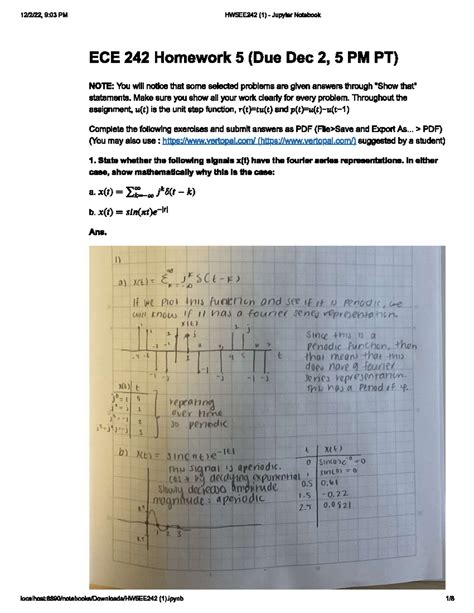 12/2/22, 9:03 PM
HW5EE242 (1) - Jupyter Notebook
ECE 242 Homework 5 (Due Dec 2, 5 PM PT)
NOTE: You will notice that some selected problems are given answers through "Show that"
statements. Make sure you show all your work clearly for every problem. Throughout the
assignment, u(t) is the unit step function, r(t)=tu(t) and p(t)=u(t)−u(t−1)
Complete the following exercises and submit answers as PDF (File>Save and Export As... > PDF)
(You may also use : https://www.vertopal.com/ (https://www.vertopal.com/) suggested by a student)
1. State whether the following signals x(t) have the fourier series representations. In either
case, show mathematically why this is the case:
a. x(t) = ∑_{k=−∞}^{∞} j^k δ(t − k)
b. x(t) = sin(πt)e^{−|t|}
Ans.
1)
a) x(t) = Σ_{k=-∞}^{∞} j^k δ(t-k)
If we plot this function and see if it is periodic, we
will know if it has a fourier series representation.
x(t)
Since this is a
periodic function, then
that means that this
does have a fourier
series representation.
This has a period of 4.
x(t) t
repeating
over time
so periodic
b) x(t) = sin(πt)e^{-|t|}
this signal is aperiodic.
by decaying exponential
slowly decreases amplitude
magnitude : aperiodic
t x(t)
0 sin(0)e^{-0} = 0
1 = 0
0.5 0.61
1.5 -0.22
2.5 0.0821
1 2 3
localhost:8890/notebooks/Downloads/HW5EE242 (1).ipynb
1/8